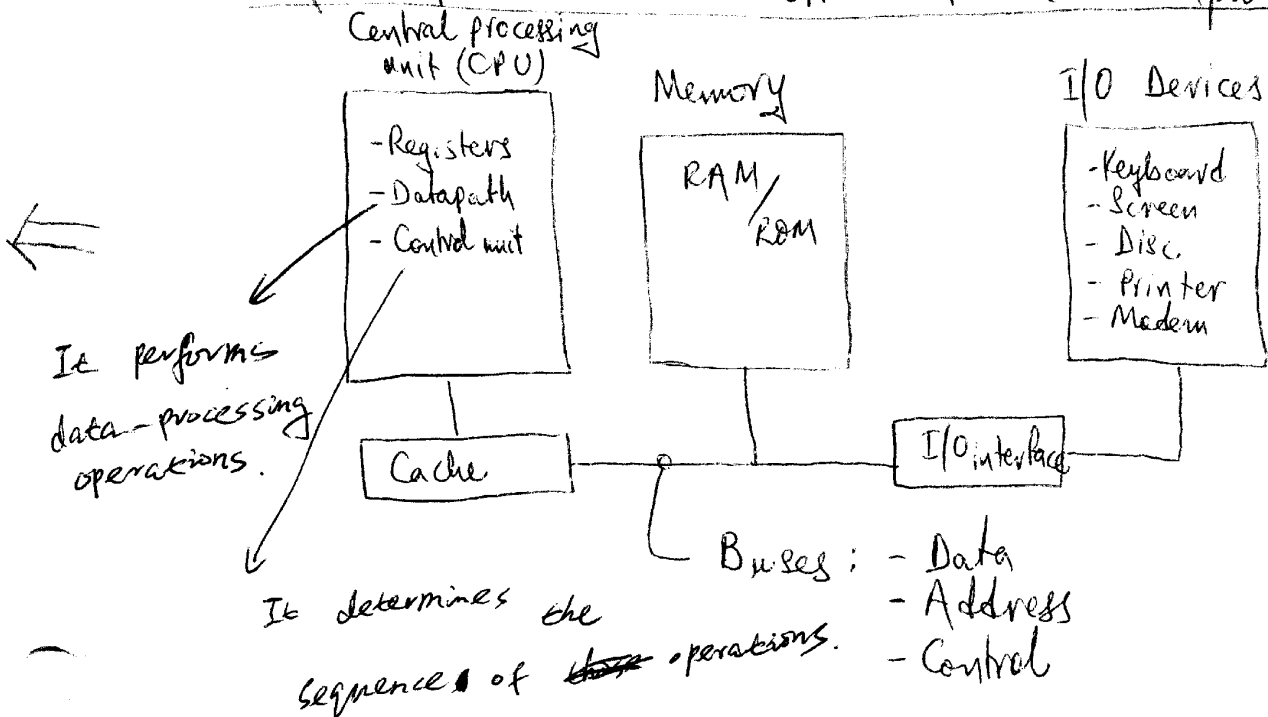 Central processing
unit (CPU)
- Registers
- Datapath
- Control unit
Memory
RAM/
ROM
I/O Devices
- Keyboard
- Screen
- Disc.
- Printer
- Modem
It performs
data-processing
operations.
Cache
I/O interface
Buses : - Data
- Address
- Control
It determines the
sequence of operations.